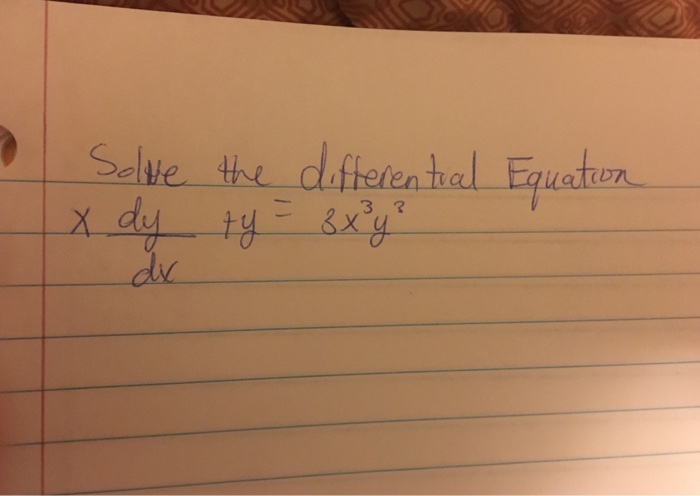 Solve the differential Equation
x dy/dx + y = 3x³y²